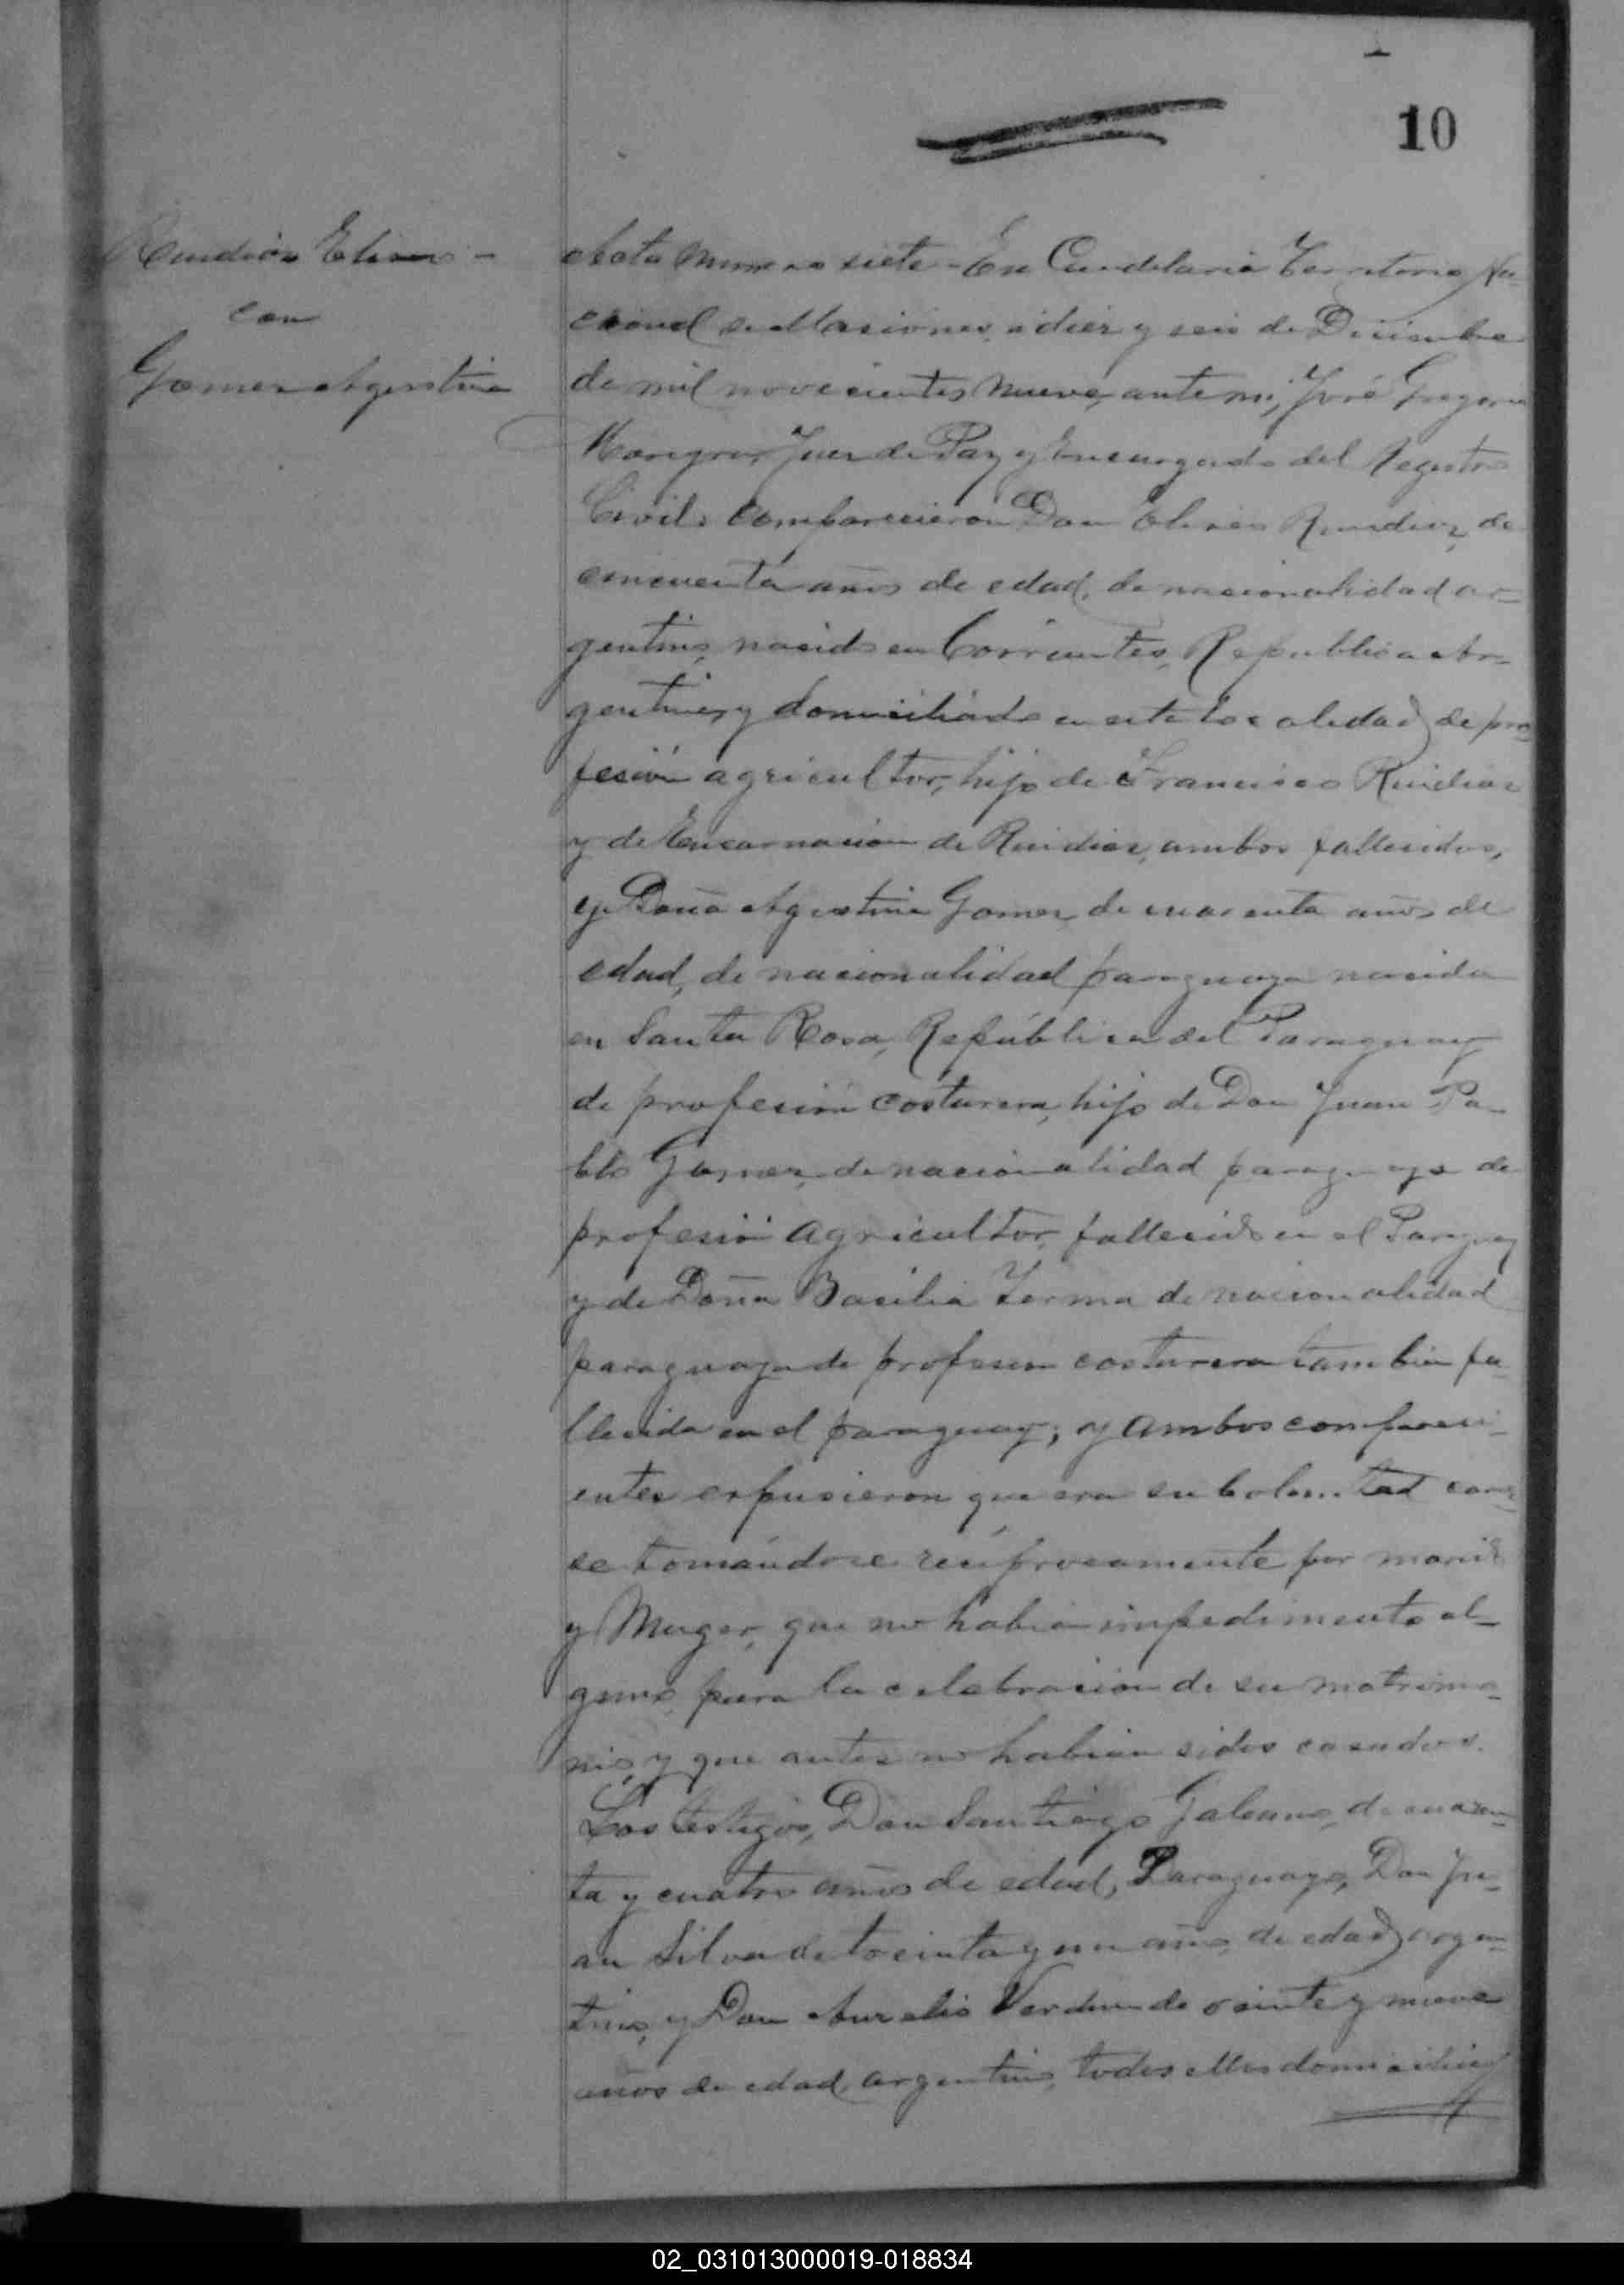 10
Ruidiaz Eliseo -
con
Gomez Agustina
Acta Numero siete - En Candelaria Territorio Na-
cional de Misiones, a diez y seis de Diciembre
de mil novecientos nueve, ante mi, José Gregorio
Juez de Paz y Encargado del Registro
Civil, comparecieron Don Eliseo Ruidiaz, de
cincuenta años de edad, de nacionalidad ar-
gentino, nacido en Corrientes, Republica Ar-
gentina, y domiciliado en esta localidad, de pro-
fesión agricultor, hijo de Francisco Ruidiaz
y de Encarnacion de Ruidiaz, ambos fallecidos,
y Doña Agustina Gomez, de cuarenta años de
edad, de nacionalidad paraguaya nacida
en Santa Rosa, República del Paraguay
de profesión costurera, hijo de Don Juan Pa-
blo Gomez, de nacionalidad paraguayo de
profesión agricultor, fallecido en el Paraguay
y de Doña Basilia de nacionalidad
paraguaya de profesion costurera tambien fa-
llecida en el paraguay; y ambos compareci-
entes expusieron que era su boluntad casar-
se tomándose recíprocamente por marido
y Muger, que no habia impedimento al-
guno para la celebracion de su matrimo-
nio, y que antes no habian sidos casados.
Los testigos, Don Santiago Galeano, de cuaren-
ta y cuatro años de edad, Paraguayo, Don Ju-
an Silva de treinta y un años de edad, argen-
tino, y Don Aurelio Verdun de veinte y nueve
años de edad, argentino, todos ellos domicilia
02_031013000019-018834